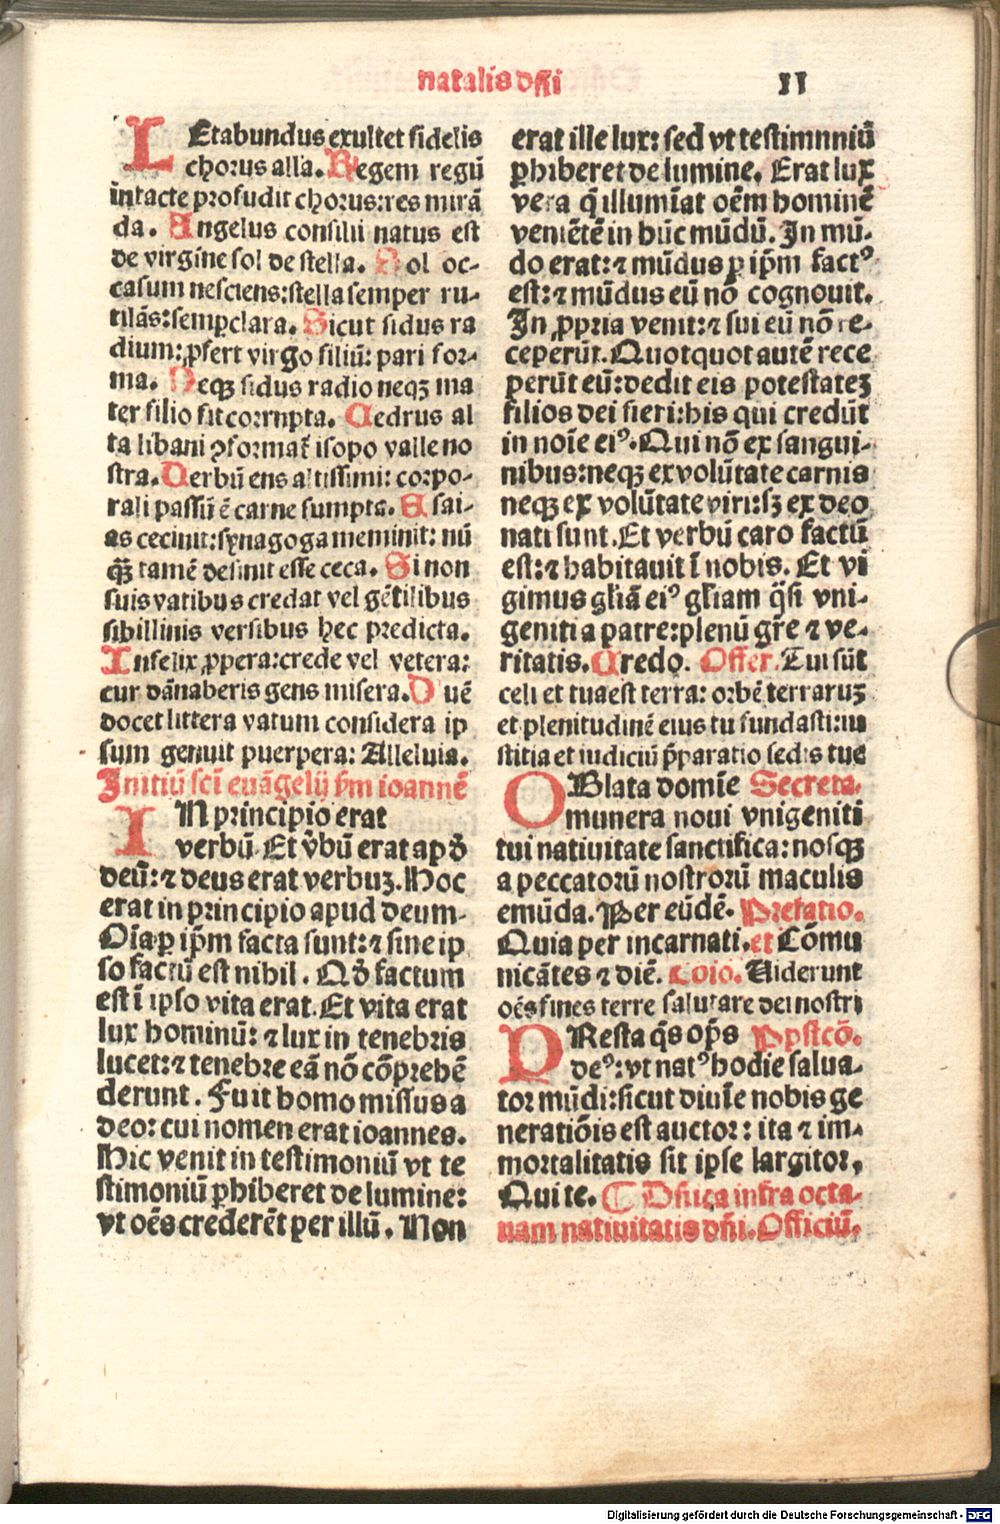 natalis dñi
11
LEtabundus exultet fidelis
chorus alla. Regem regū
intacte profudit chorus: res mirā
da. Angelus consilii natus est
de virgine sol de stella. Sol oc-
casum nesciens: stella semper ru-
tilās: semp clara. Sicut sidus ra
dium: ꝓfert virgo filiū: pari for-
ma. Neqꝫ sidus radio neqꝫ ma
ter filio fit corrupta. Cedrus al
ta libani ꝯformat̄ isopo valle no
stra. Verbū ens altissimi: corpo-
rali passū ē carne sumpta. Esai-
as cecinit: synagoga meminit: nū
qͣꝫ tamē desinit esse ceca. Si non
suis vatibus credat vel gētilibus
sibillinis versibus hec predicta.
Infelix ꝓpera: crede vel vetera:
cur dānaberis gens misera. Quē
docet littera vatum considera ip
sum genuit puerpera: Alleluia.
Initiū sci evāgelij ẜm ioannē
IN principio erat
verbū. Et v̄bū erat apd̄
deū: ⁊ deus erat verbuꝫ. Hoc
erat in principio apud deum.
Oīa ꝑ ip̄m facta sunt: ⁊ sine ip
so factū est nihil. Qd̄ factum
est ī ipso vita erat. Et vita erat
lux hominū: ⁊ lux in tenebris
lucet: ⁊ tenebre eā nō cōprehē
derunt. Fuit homo missus a
deo: cui nomen erat ioannes.
Hic venit in testimoniū vt te
stimoniū ꝑhiberet de lumine:
vt oēs crederēt per illū. Non
erat ille lux: sed vt testimnniū
ꝑhiberet de lumine. Erat lux
vera q̄ illumīat oēm hominē
veniētē in hūc mūdū. In mū-
do erat: ⁊ mūdus ꝑ ip̄m factꝰ
est: ⁊ mūdus eū nō cognouit.
In ꝓpria venit: ⁊ sui eū nō re-
ceperūt. Quotquot autē rece
perūt eū: dedit eis potestateꝫ
filios dei fieri: his qui credūt
in noīe eiꝰ. Qui nō ex sangui-
nibus: neqꝫ ex volūtate carnis
neqꝫ ex volūtate viri: sꝫ ex deo
nati sunt. Et verbū caro factū
est: ⁊ habitauit ī nobis. Et vi
gimus gl̄iā eiꝰ gl̄iam q̄si vni-
geniti a patre: plenū gr̄e ⁊ ve-
ritatis. Credo. Offer. Tui sūt
celi et tua est terra: orbē terraruꝫ
et plenitudinē eius tu fundasti: iu
stitia et iudiciū p̄paratio sedis tue
OBlata domīe Secreta.
munera noui vnigeniti
tui natiuitate sanctifica: nosqꝫ
a peccatorū nostrorū maculis
emūda. Per eūdē. Prefatio.
Quia per incarnati. et Cōmu
nicātes ⁊ diē. Cōio. Viderunt
oēs fines terre salutare dei nostri
PResta q̄s op̄s Ppstcō.
deꝰ: vt natꝰ hodie salua-
tor mūdi: sicut diuīe nobis ge
neratiōis est auctor: ita ⁊ im-
mortalitatis sit ipse largitor,
Qui te. ¶ Dñica infra octa-
uam natiuitatis dñi. Officiū.
Digitalisierung gefördert durch die Deutsche Forschungsgemeinschaft - DFG